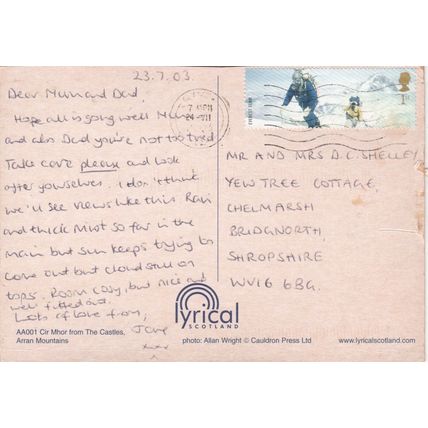 23.7.03.
Dear Mum and Dad,
Hope all is going well Mum
and also Dad you're not too tired
Take care please and look
after yourselves. I don't think
we'll see views like this. Rain
and thick mist so far in the
main but sun keeps trying to
come out but cloud still on
tops. Room cosy, but nice and
well fitted out.
Lots of love from,
Jane
xxx
1st
7 PM
24 VII
MR AND MRS D.C. SHELLEY,
YEW TREE COTTAGE,
CHELMARSH
BRIDGNORTH,
SHROPSHIRE
WV16 6BG.
lyrical
SCOTLAND
AA001 Cir Mhor from The Castles,
Arran Mountains
photo: Allan Wright © Cauldron Press Ltd
www.lyricalscotland.com